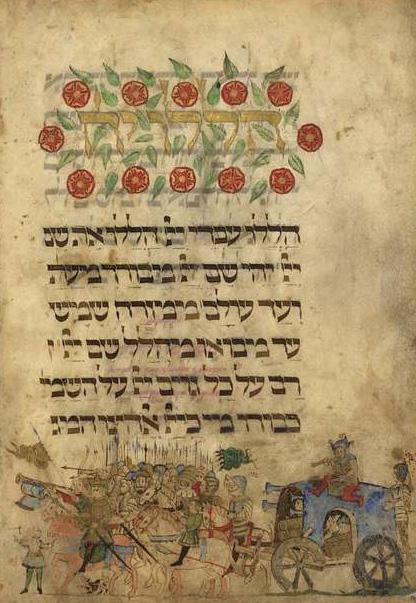 הללויה
הללו עבדי ייי הללו את שם
ייי יהי שם ייי מבורך מעתה
ועד עולם ממזרח שמש
עד מבואו מהלל שם ייי
רם על כל גוים ייי על השמי
כבודו מי כייי אלהינו המג